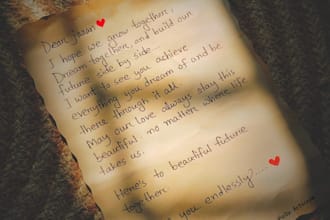 Dear
I hope we grow together,
Dream together, and build our
future side by side...
I want to see you achieve
everything you dream of and be
there through it all
May our love always stay this
beautiful no matter where life
takes us.
Here's to beautiful future
together.
you endlessly?....